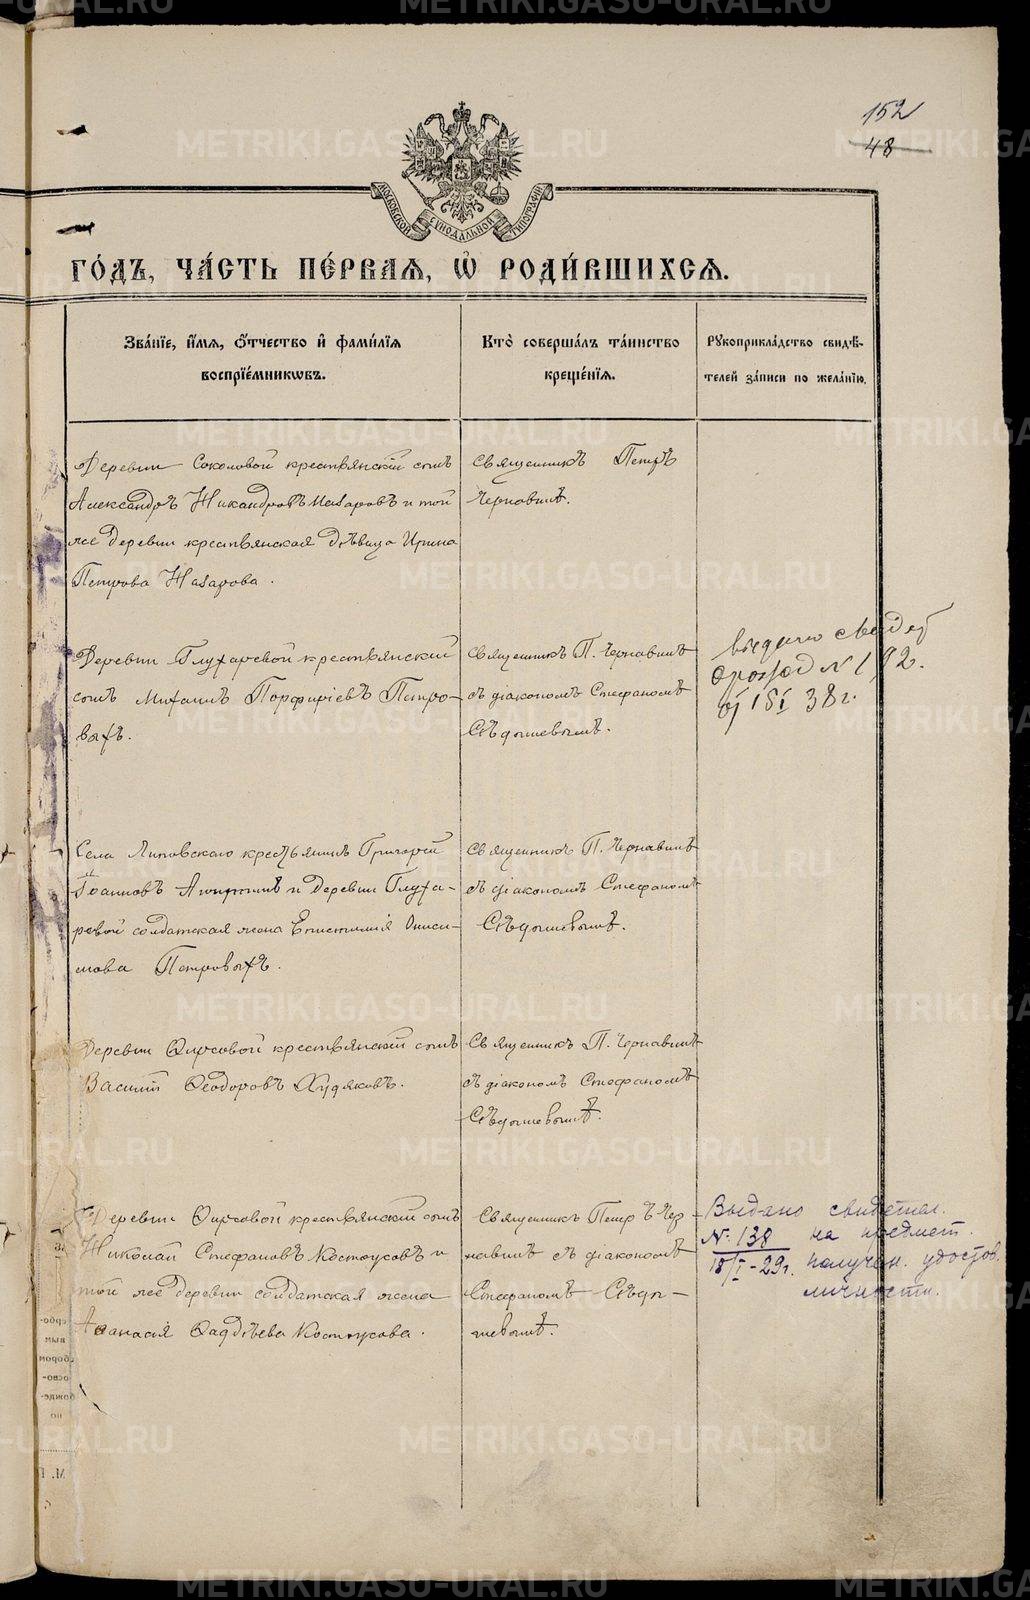 152
48
МОСКОВСКОЙ СѴНОДАЛЬНОЙ ТИПОГРАФІИ
ГО́ДЪ, ЧА́СТЬ ПЕ́РВАѦ, Ѽ РОДИ́ВШИХСѦ.
Зва́нїе, и҆́мѧ, ѻ҆́тчество и҆ фами́лїѧ
воспрїе́мникѡвъ.
Кто̀ соверша́лъ та́инство
креще́нїѧ.
Рꙋкоприкла́дство свидѣ́-
телей за́писи по жела́нїю.
Деревни Соколовой крестьянскій сынъ
Александръ Никандровъ Назаровъ и той
же деревни крестьянская дѣвица Ирина
Петрова Назарова.
Священникъ Петръ
Чернавинъ.
Деревни Глухаревой крестьянскій
сынъ Михаилъ Порфиріевъ Петро-
выхъ.
Священникъ П. Чернавинъ
съ діакономъ Стефаномъ
Сѣдышевымъ.
выдано свидет
о рожд N 192.
от 15/I 38 г.
Села Липовскаго крестьянинъ Григорій
Іоанновъ и деревни Глуха-
ревой солдатская жена Епистимія Ониси-
мова Петровыхъ.
Священникъ П. Чернавинъ
съ діакономъ Стефаномъ
Сѣдышевымъ.
Деревни Фирсовой крестьянскій сынъ
Василій Ѳеодоровъ Худяковъ.
Священникъ П. Чернавинъ
съ діакономъ Стефаномъ
Сѣдышевымъ.
Деревни Фирсовой крестьянскій сынъ
Николай Стефановъ Костоусовъ и
той же деревни солдатская жена
Аѳанасія Ѳаддѣева Костоусова.
Священникъ Петръ Чер-
навинъ съ діакономъ
Стефаномъ Сѣды-
шевымъ.
Выдано свидетел.
№ 138 на предмет
18/I-29г. получен. удостов.
личности.
METRIKI.GASO-URAL.RU